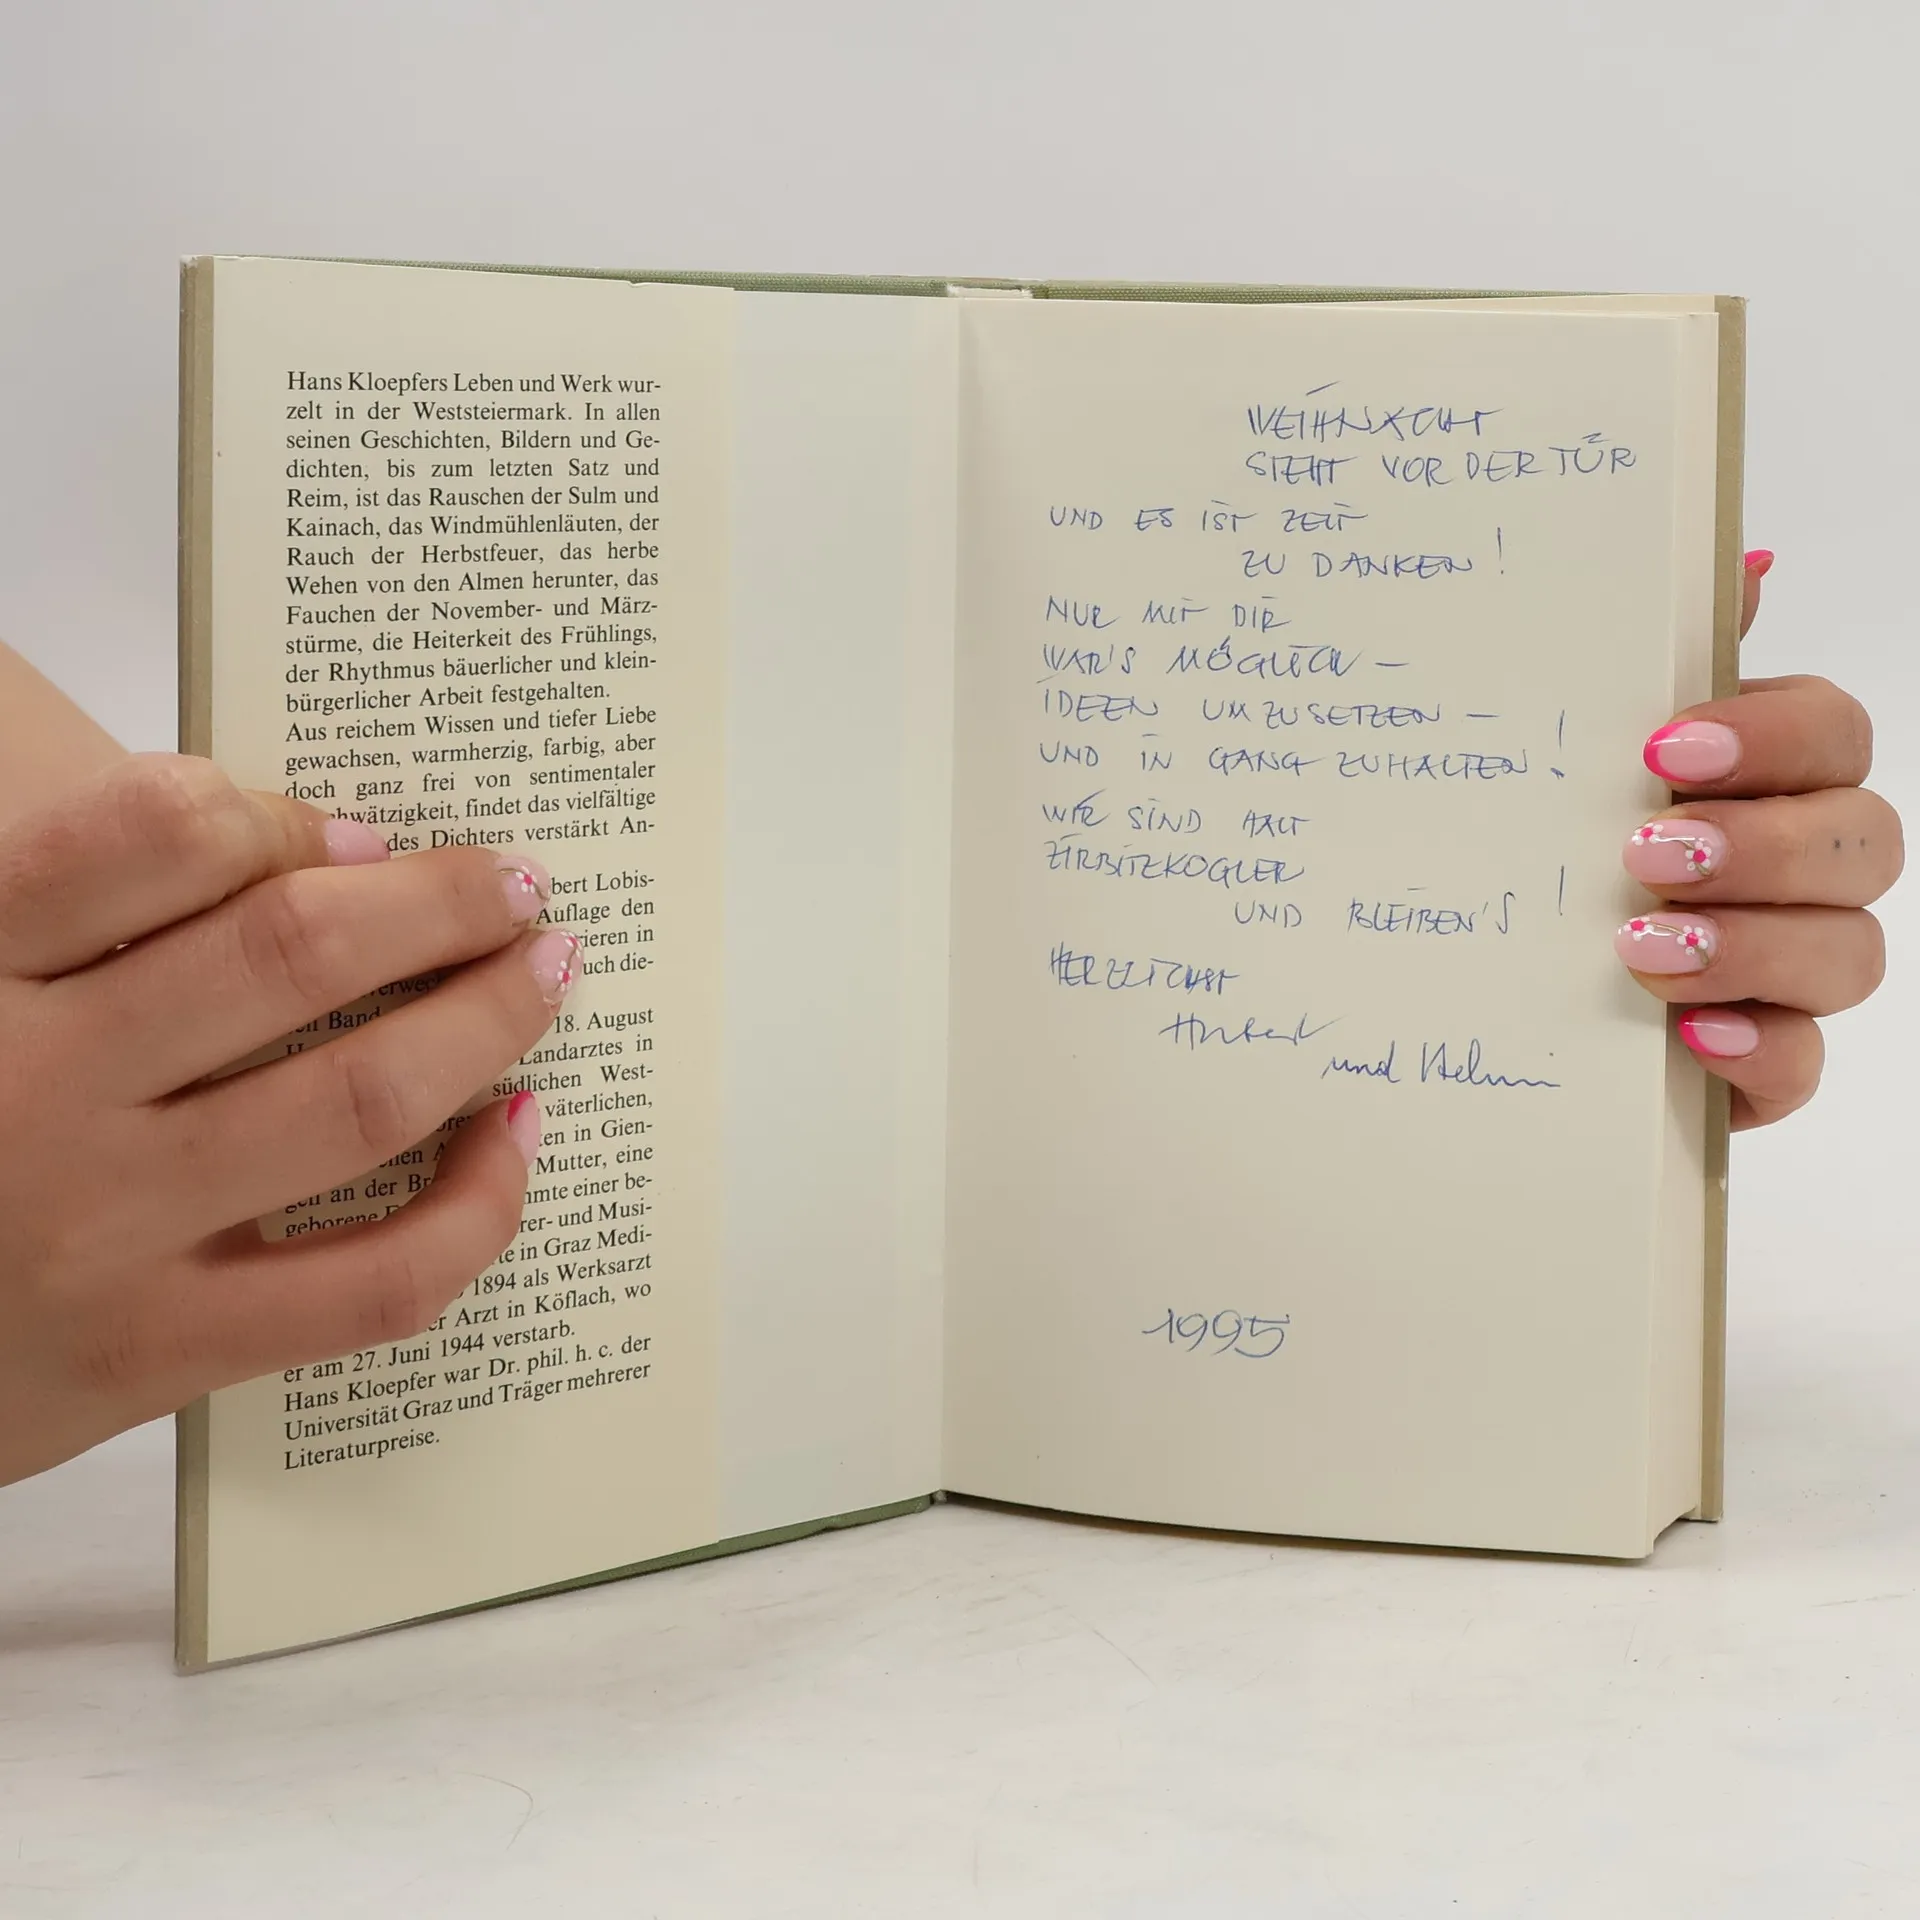 Hans Kloepfers Leben und Werk wur-
zelt in der Weststeiermark. In allen
seinen Geschichten, Bildern und Ge-
dichten, bis zum letzten Satz und
Reim, ist das Rauschen der Sulm und
Kainach, das Windmühlenläuten, der
Rauch der Herbstfeuer, das herbe
Wehen von den Almen herunter, das
Fauchen der November- und März-
stürme, die Heiterkeit des Frühlings,
der Rhythmus bäuerlicher und klein-
bürgerlicher Arbeit festgehalten.
Aus reichem Wissen und tiefer Liebe
gewachsen, warmherzig, farbig, aber
doch ganz frei von sentimentaler
hwätzigkeit, findet das vielfältige
des Dichters verstärkt An-
bert Lobis-
Auflage den
ieren in
uch die-
Band
18. August
Landarztes in
südlichen West-
väterlichen,
ten in Gien-
Mutter, eine
mmte einer be-
gen an der Br
rer- und Musi-
geborene
te in Graz Medi-
1894 als Werksarzt
er Arzt in Köflach, wo
er am 27. Juni 1944 verstarb.
Hans Kloepfer war Dr. phil. h. c. der
Universität Graz und Träger mehrerer
Literaturpreise.
WEIHNACHT
STEHT VOR DER TÜR
UND ES IST ZEIT
ZU DANKEN!
NUR MIT DIR
WAR'S MÖGLICH –
IDEEN UMZUSETZEN –
UND IN GANG ZU HALTEN!
WIR SIND HALT
ZIRBITZKOGLER
UND BLEIBEN'S!
HERZLICHST
Hubert
und Helmi
1995